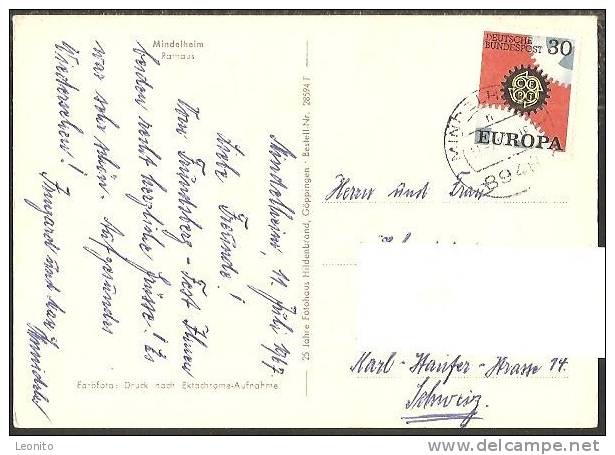 Mindelheim
Rathaus
Mindelheim, 11. Juli 1967.
Liebe Freunde!
Vom Frundsberg-Fest Ihnen
beiden recht herzliche Grüsse! Es
war sehr schön. Auf gesundes
Wiedersehen!
Irmgard und Max
Farbfoto: Druck nach Ektachrome-Aufnahme
25 Jahre Fotohaus Hildenbrand, Göppingen - Bestell-Nr. 28594 T
DEUTSCHE
BUNDESPOST 30
CEPT
EUROPA
8948
Herrn und Frau
Karl-Haufer-Strasse 14.
Schweiz.
Leonito
delcampe.net